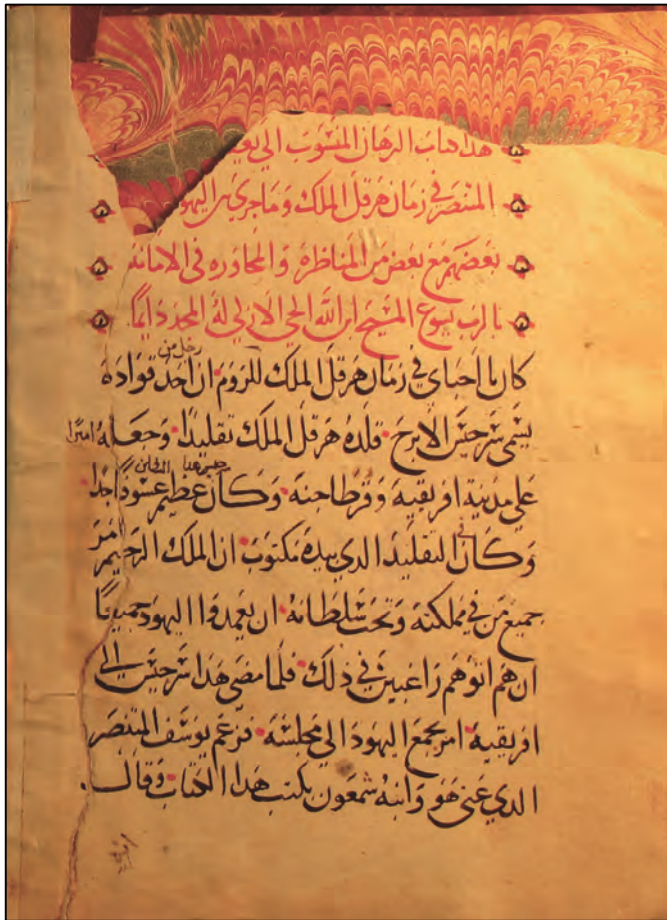 هذا كتاب البرهان المنسوب الي يعـ
المنتصر في زمان هرقل الملك وما جري بين اليهود
بعضهم مع بعض من المناظرة والمحاوره في الامانه
بالرب يسوع المسيح ابن الله الحي الازلي له المجد دايما
رجل من
كان يا احباي في زمان هرقل الملك للروم ان احد قواده
يسمي سرجيس الابرح قلده هرقل الملك تقليدا وجعله اميرا
علي مدينة افريقية وقرطاجنة وكان عظيم عشوفا جدا
وكان في التقليد الدي بيده مكتوب ان الملك الرحيم امر
جميع من في مملكته وتحت سلطانه ان يعمدوا اليهود جميعا
ان هم اتوهم راغبين في دلك فلما مضي هدا سرجيس الي
افريقية امر بجمع اليهود الي مجلسه فزعم يوسف المتنصر
الدي عني هو وابنه شمعون بكتب هدا الكتاب وقال